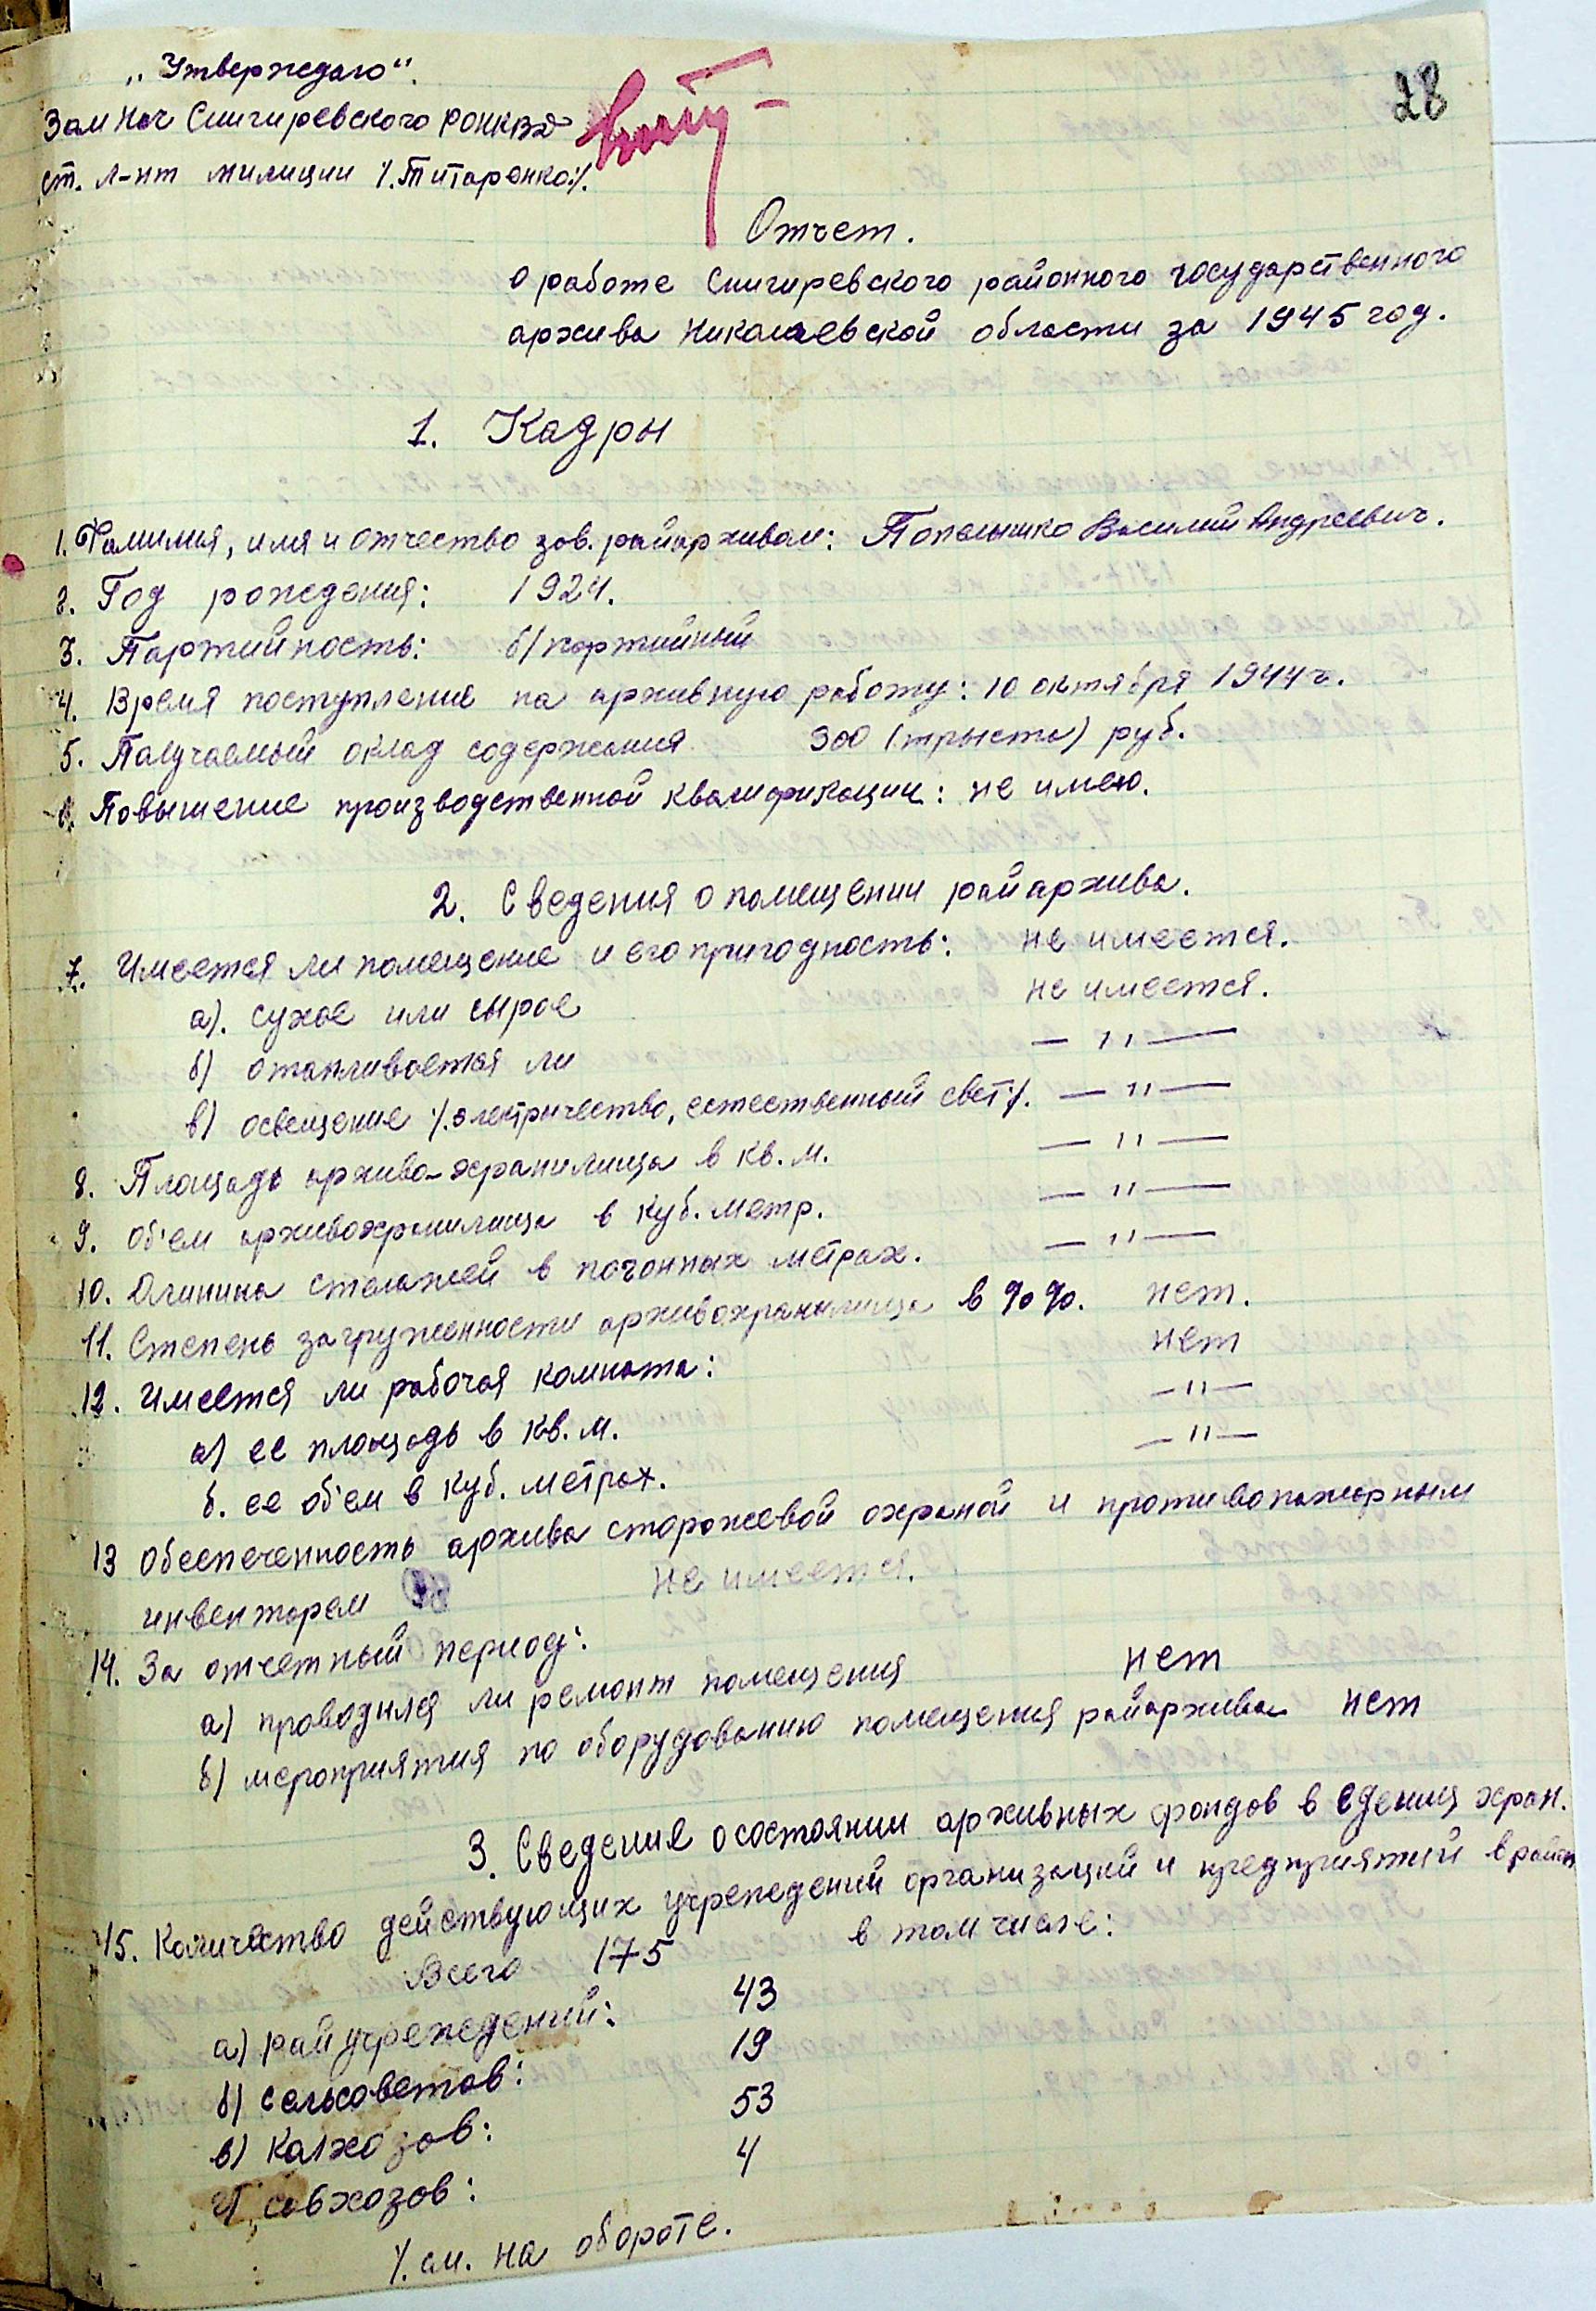 28
„Утверждаю“.
Зам Нач Снигиревского РОНКВД
ст. л-нт милиции /.Титаренко:/.
Отчет.
о работе Снигиревского районного государственного
архива Николаевской области за 1945 год.
1. Кадры
1. Фамилия, имя и отчество зав. райархивом: Попелышко Василий Андреевич.
2. Год рождения: 1924.
3. Партийность: б/партийный
4. Время поступление на архивную работу: 10 октября 1944 г.
5. Получаемый оклад содержания 300 (триста) руб.
6. Повышение производственной квалификации: не имею.
2. Сведения о помещении райархива.
7. Имеется ли помещение и его пригодность: не имеется.
а). сухое или сырое не имеется.
б) отапливается ли — " —
в) освещение /.электричество, естественный свет/. — " —
8. Площадь архиво-хранилища в кв. м. — " —
9. Об'ем архивохранилища в куб. метр. — " —
10. Длинина стелажей в погонных метрах. — " —
11. Степень загруженности архивохранилища в %%. нет.
12. Имеется ли рабочая комната: нет
а) ее площадь в кв. м. — " —
б. ее об'ем в куб. метрах. — " —
13 Обеспеченность архива сторожевой охраной и противопожарным
инвентарем не имеется.
14. За отчетный период:
а) проводился ли ремонт помещения нет
б) мероприятия по оборудованию помещения райархива нет
3. Сведения о состоянии архивных фондов в едениц хран.
15. Количество действующих учреждений организаций и предприятий в район
Всего 175 в том числе:
а) райучреждений: 43
б) сельсоветов: 19
в) колхозов: 53
г) совхозов: 4
/. см. на обороте.